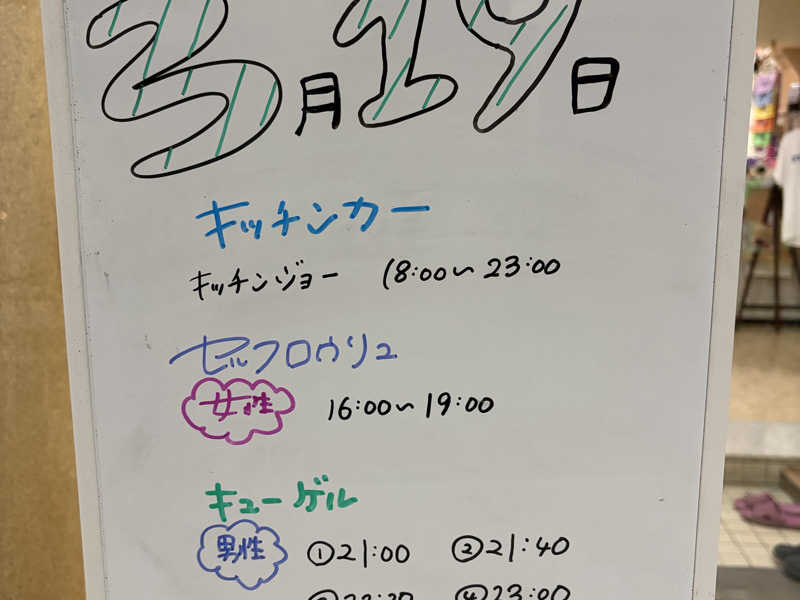 3月19日
キッチンカー
キッチンジョー 18:00〜23:00
セルフロウリュ
女性 16:00〜19:00
キューゲル
男性 ①21:00 ②21:40
④23:00